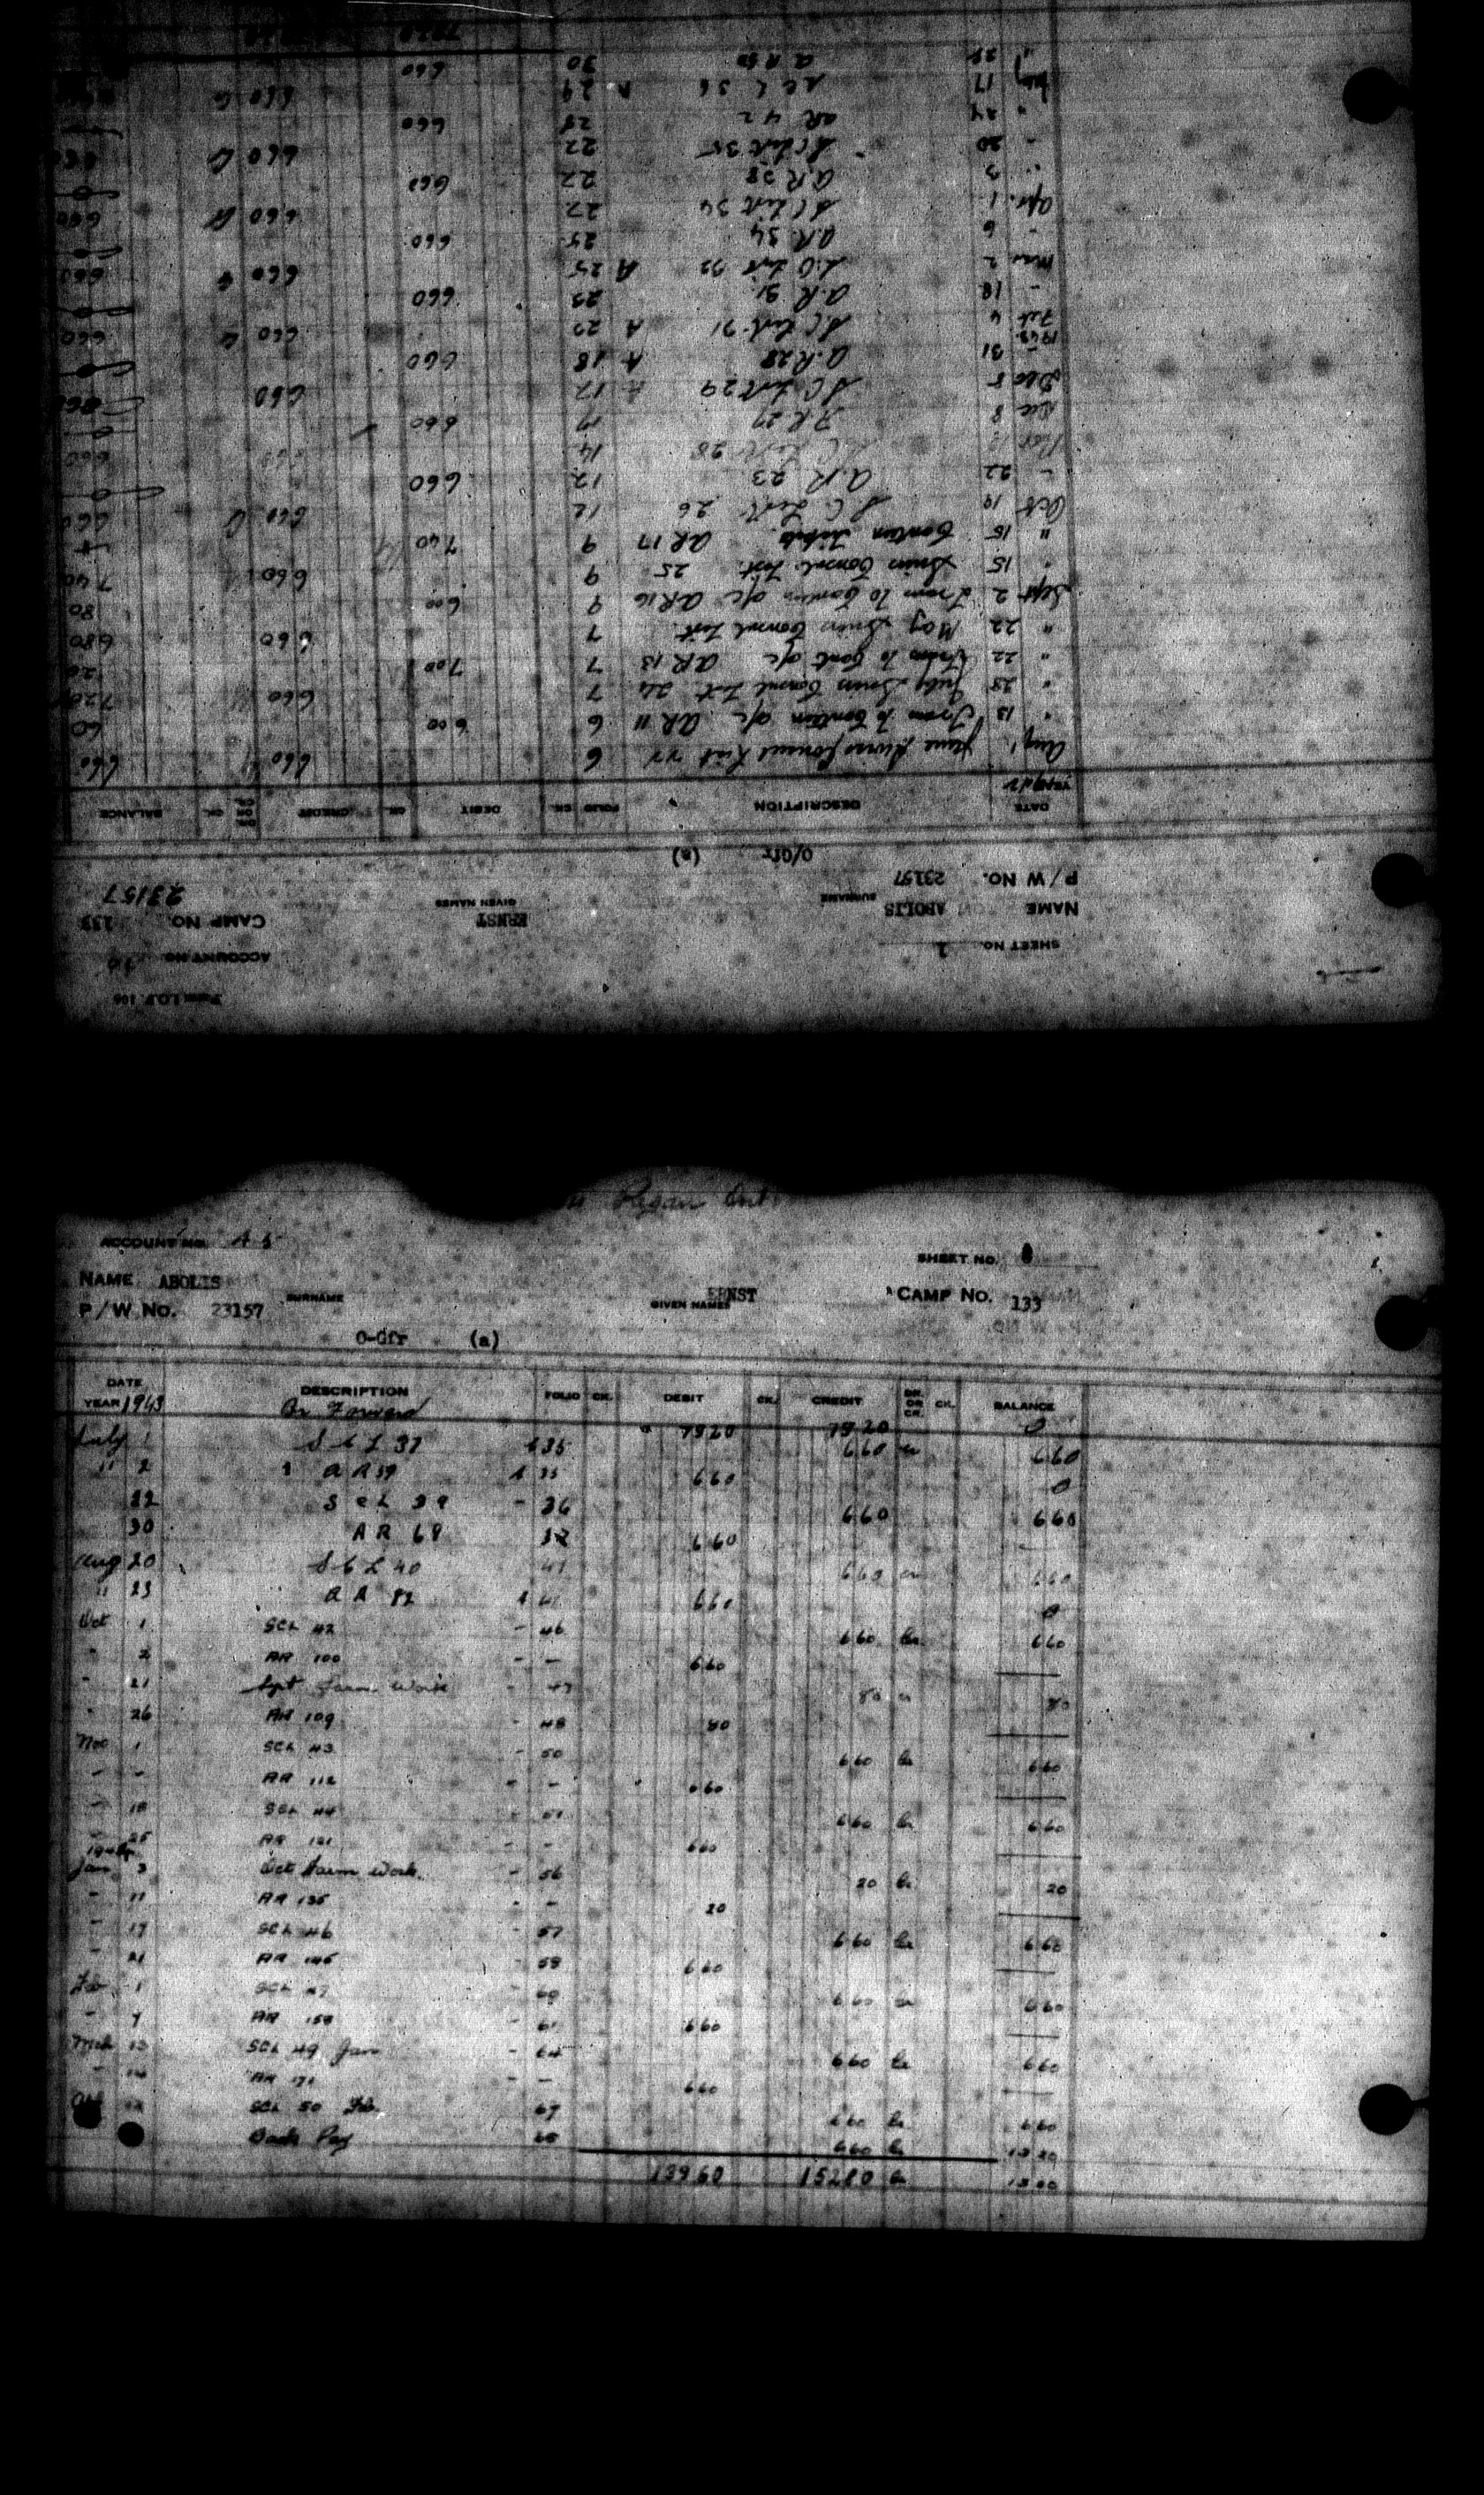 Form I.O.P. 106
SHEET NO. 1 ACCOUNT NO.
NAME ABOLIS SURNAME ERNST GIVEN NAMES CAMP NO. 133
P/W NO. 23157 23157
O/Gfr (a)
DATE DESCRIPTION FOLIO CK. DEBIT CK. CREDIT DR. OR CR. CK. BALANCE
YEAR
Aug 1 June Swiss Consul List 6 660 660
" 13 Trans to Canteen a/c AR 11 6 600 60
" 28 July Swiss Consul List 24 7 660 720
" 22 Trans to Cant a/c AR 13 7 700 20
" 22 Aug Swiss Consul List 7 660 680
Sept 2 Trans to Canteen a/c AR 16 9 600 80
" 15 Swiss Consul List 25 9 660 740
" 15 Canteen Tickets AR 17 9 740
Oct 19 S C List 26 12 660 660
- 22 A R 23 12 660
28 14 660
Dec 8 A R 27 17 660
Dec 5 S C List 29 A 17 660 660
- 31 A.R 28 A 18 660
1943
Feb 4 S.C List 31 A 23 660 660
- 18 A.R 31 23 660
Mar 2 S.C List 32 A 25 660 660
- 6 A.R. 34 25 660
Apr. 1 S C List 34 27 660 660
3 A.R 38 27 660
- 20 S C List 35 660 660
" 24 AR 42 28 660
May 17 S C L 36 A 29 660
" 28 A R 50 30 660
ACCOUNT NO. A 5 SHEET NO.
NAME ABOLIS SURNAME ERNST GIVEN NAMES CAMP NO. 133
P/W NO. 23157
O-Gfr (a)
DATE DESCRIPTION FOLIO CK. DEBIT CK. CREDIT DR. OR CR. CK. BALANCE
YEAR 1943 Br Forward 7920 7920 0
July 1 S C L 37 35 660 cr 660
" 2 A R 59 A 35 660 0
22 S C L 39 - 36 660 660
30 A R 68 660
Aug 20 S C L 40 41 660 cr 660
" 23 A R 82 A 660 0
Oct 1 SCL 42 - 46 660 Cr. 660
- 2 AR 100 - - 660
- 21 Spt Farm Work - 47 80 cr 80
- 26 AR 109 - 48 80
Nov 1 SCL 43 - 50 660 Cr 660
- - AR 112 - - 660
- 18 SCL 44 - 51 660 Cr 660
- 25 AR 121 - - 660
1944
Jan 3 Oct Farm Work. - 56 20 Cr 20
- 11 AR 135 - - 20
- 17 SCL 46 - 57 660 Cr 660
- 21 AR 145 - 58 660
Feb 1 SCL 47 - 60 660 cr 660
- 7 AR 158 - 61 660
Mch 13 SCL 49 Jan - 64 660 Cr 660
- 14 AR 171 - - 660
SCL 50 Feb. 67 660 Cr 660
Back Pay 68 660 Cr 1320
13960 15280 Cr